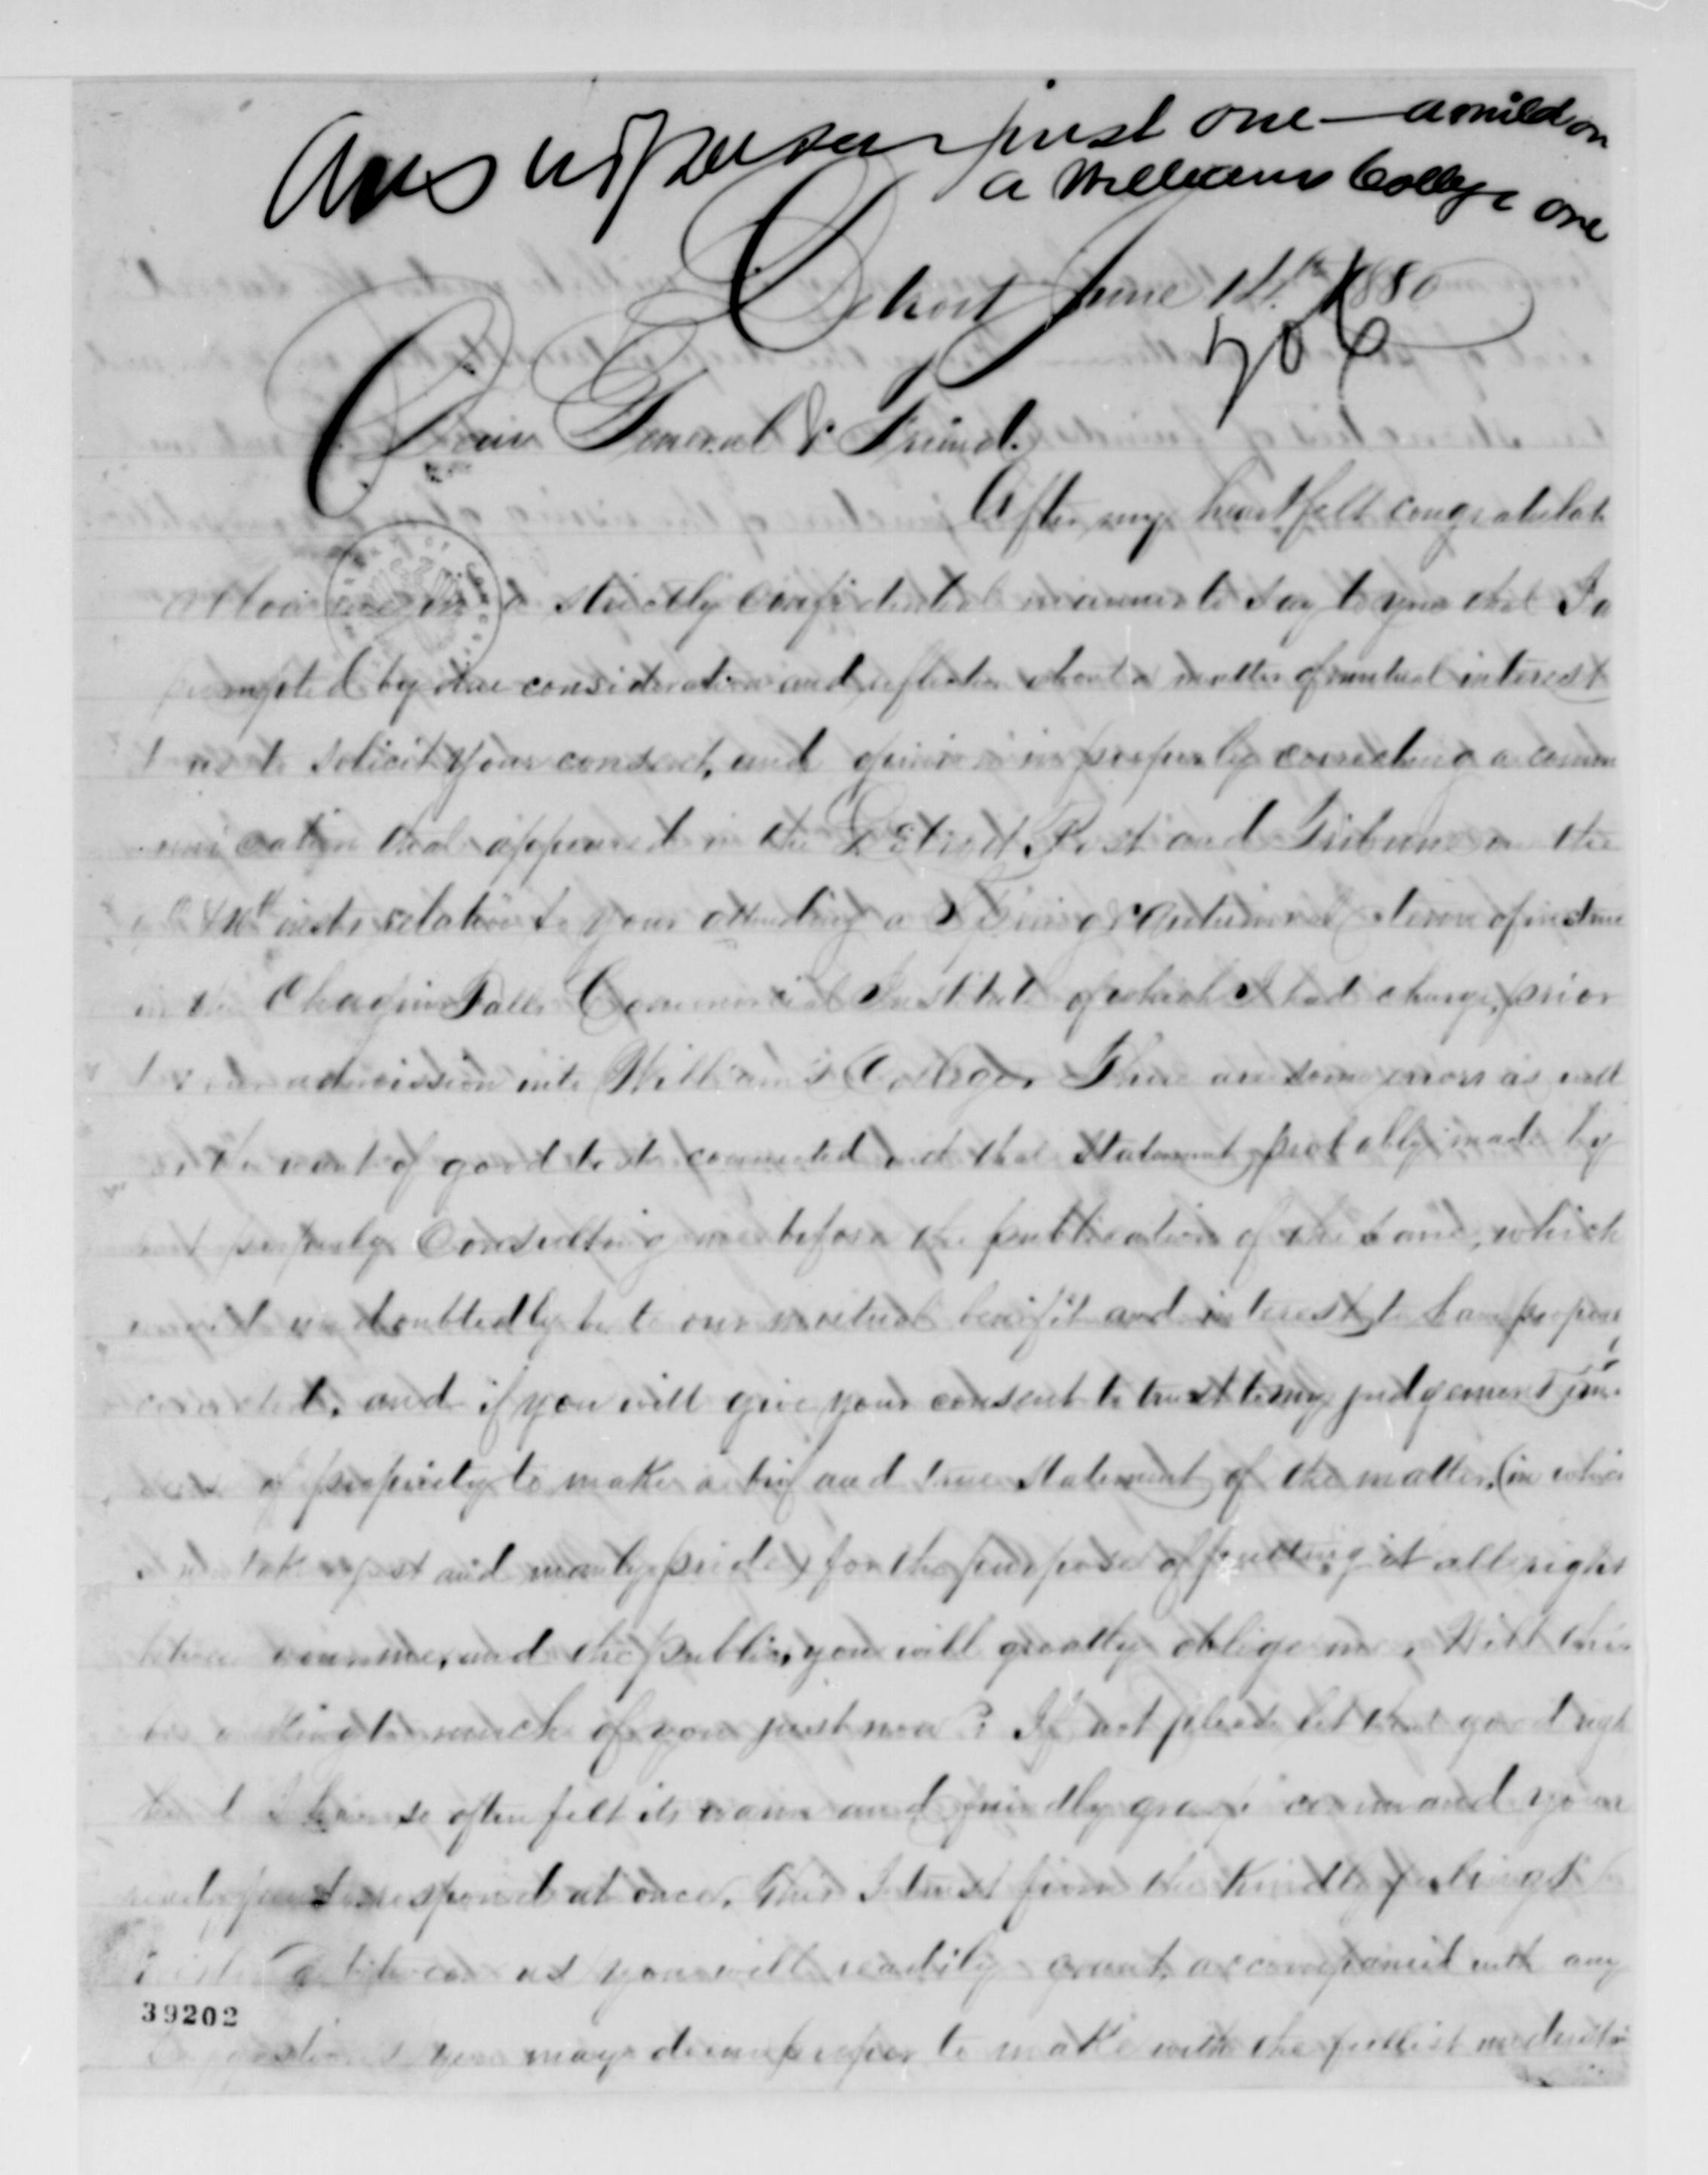 just one — a mild on
a Williams College one
Detroit June 14th 1880
Dear General & Friend.
After my heartfelt congratulat
allow me in a strictly confidential manner to say to you that I a
prompted by due consideration and reflection about a matter of mutual interest
to solicit your consent, and opinion in properly correcting a comm
unication that appeared in the Detroit Post and Tribune on the
inst. relation to your attending a Spring & Autumnal term of
in the Chagrin Falls Commercial Institute of which I had charge, prior
to your admission into William's College. There are some errors as well
as the want of good taste connected with that statement probably made by
not properly consulting me before the publication of the same, which
would undoubtedly be to our mutual benefit and interest to have proper
corrected, and if you will give your consent to trust to my judgement
of propriety to make a brief and true statement of the matter, (in which
I take a just and manly pride) for the purpose of putting it all right
between you, me, and the public, you will greatly oblige me. Will this
be asking too much of you just now? If not please let that good righ
hand I have so often felt its warm and friendly grasp command your
ready pen to respond at once. This I trust from the kindly feelings
existing between us you will readily grant, accompanied with any
suggestions you may deem proper to make with the fullest
39202